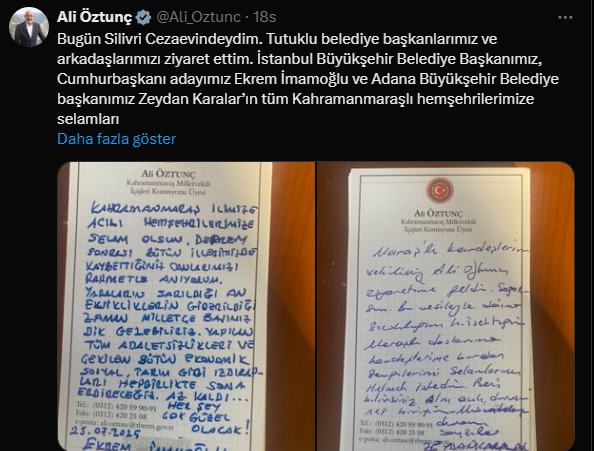 Ali Öztunç @Ali_Oztunc · 18s
Bugün Silivri Cezaevindeydim. Tutuklu belediye başkanlarımız ve
arkadaşlarımızı ziyaret ettim. İstanbul Büyükşehir Belediye Başkanımız,
Cumhurbaşkanı adayımız Ekrem İmamoğlu ve Adana Büyükşehir Belediye
başkanımız Zeydan Karalar’ın tüm Kahramanmaraşlı hemşehrilerimize
selamları
Daha fazla göster
ALİ ÖZTUNÇ
Kahramanmaraş Milletvekili
İçişleri Komisyonu Üyesi
KAHRAMANMARAŞ İLİMİZE
ACILI HEMŞEHRİLERİMİZE
SELAM OLSUN. DEPREM
SONRASI BÜTÜN İLLERİMİZDE
KAYBETTİĞİNİZ CANLARIMIZI
RAHMETLE ANIYORUM.
YARALARIN SARILDIĞI AN
EKSİKLİKLERİN GİDERİLDİĞİ
ZAMAN MİLLETÇE BAŞIMIZ
DİK GEZEBİLİRİZ. YAPILAN
TÜM ADALETSİZLİKLERİ VE
ÇEKİLEN BÜTÜN EKONOMİK
SOSYAL, TARIM GİBİ IZDIRAP-
LARI HEPBİRLİKTE SONA
ERDİRECEĞİZ. AZ KALDI...
HER ŞEY
ÇOK GÜZEL
OLACAK!
Tel.: (0312) 420 59 90-91
Faks: (0312) 420 25 08
e-posta: ali.oztunc@tbmm.gov.tr
25.07.2025
EKREM İMAMOĞLU
ALİ ÖZTUNÇ
Kahramanmaraş Milletvekili
İçişleri Komisyonu Üyesi
Maraş'lı kardeşlerim
vekiliniz Ali Öztunç
ziyaretime geldi. Sağol-
sun. bu vesileyle
Maraşlı dostlarıma
kardeşlerime buradan
Sevgilerimi Selamlarımı
istedim. Beni
bilirsiniz Alnı açık,
Tel.: (0312) 420 59 90-91
Faks: (0312) 420 25 08
e-posta: ali.oztunc@tbmm
devam
ZEYDAN KARALAR